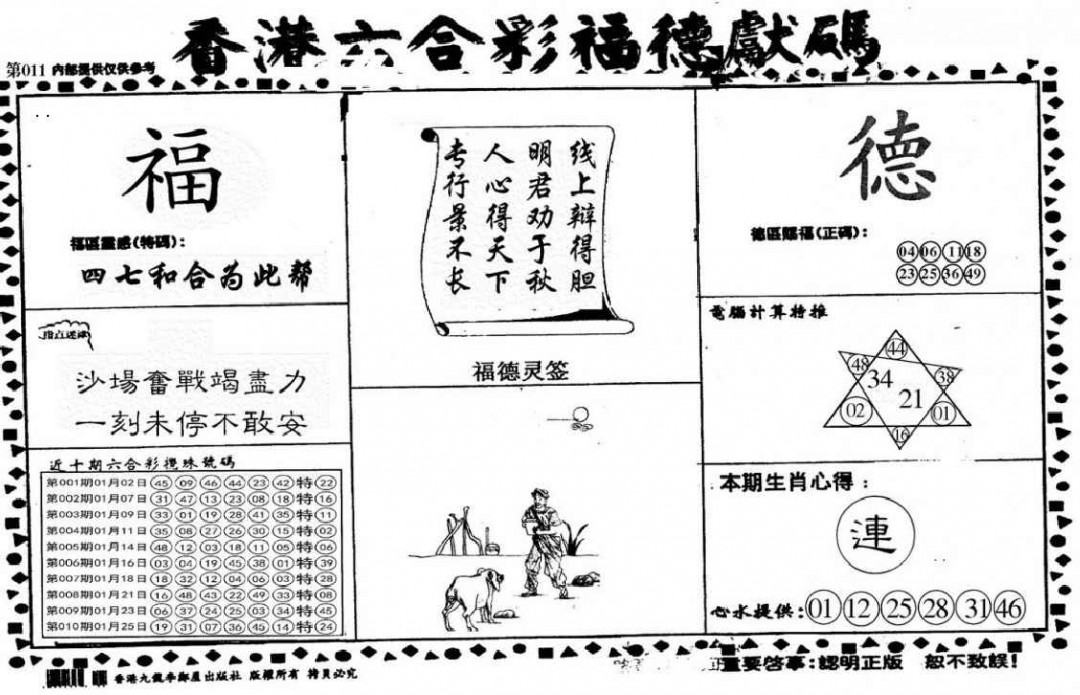 香港六合彩福德獻碼
第011 内部提供仅供参考
福
福區靈感(特碼):
四七和合为此幣
指点迷津
沙場奮戰竭盡力
一刻未停不敢安
近十期六合彩攪珠號碼
第001期01月02日 45 09 46 44 23 42 特 22
第002期01月07日 31 47 13 23 08 18 特 16
第003期01月09日 33 01 19 28 41 35 特 11
第004期01月11日 35 08 27 26 30 15 特 02
第005期01月14日 48 12 03 18 11 05 特 06
第006期01月16日 03 04 19 45 38 01 特 39
第007期01月18日 18 32 12 04 06 03 特 28
第008期01月21日 16 48 43 22 49 33 特 08
第009期01月23日 06 37 24 25 03 34 特 45
第010期01月25日 19 31 07 36 45 14 特 24
线上辩得胆
明君劝于秋
人心得天下
专行景不长
福德灵签
德
德區賜福(正碼):
04 06 11 18
23 25 36 49
電腦計算特推
44
48 34 38
02 21 01
16
本期生肖心得:
連
心水提供: 01 12 25 28 31 46
香港九龍 出版社 版權所有 拷貝必究
重要啓事:認明正版 般不致誤!